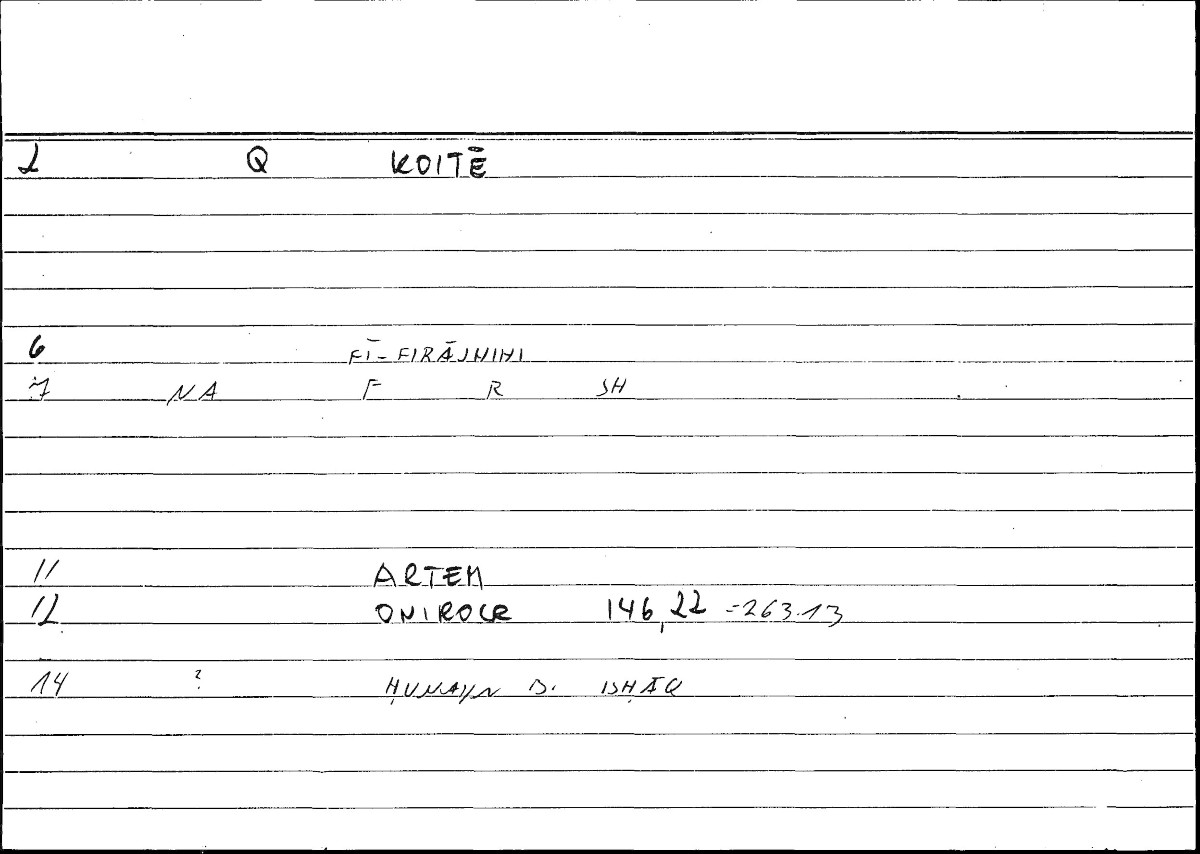 2 Q KOITĒ
6 FĪ-FIRĀJHIHI
7 NA F R SH
11 ARTEM
12 ONIROCR 146,22 =263.13
14 ? ḤUNAYN B. ISḤĀQ